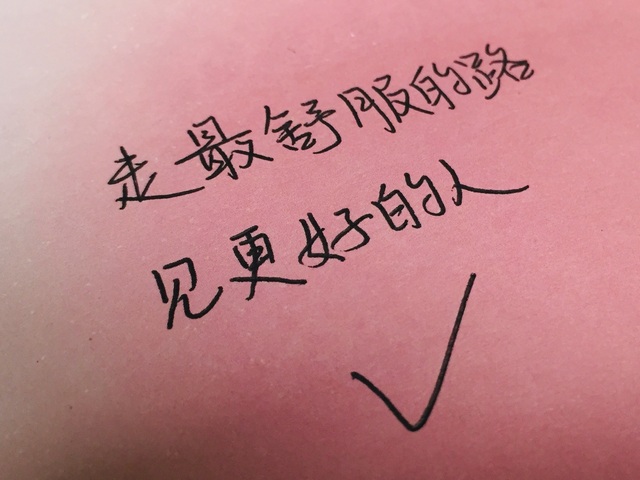 走最舒服的路
见更好的人